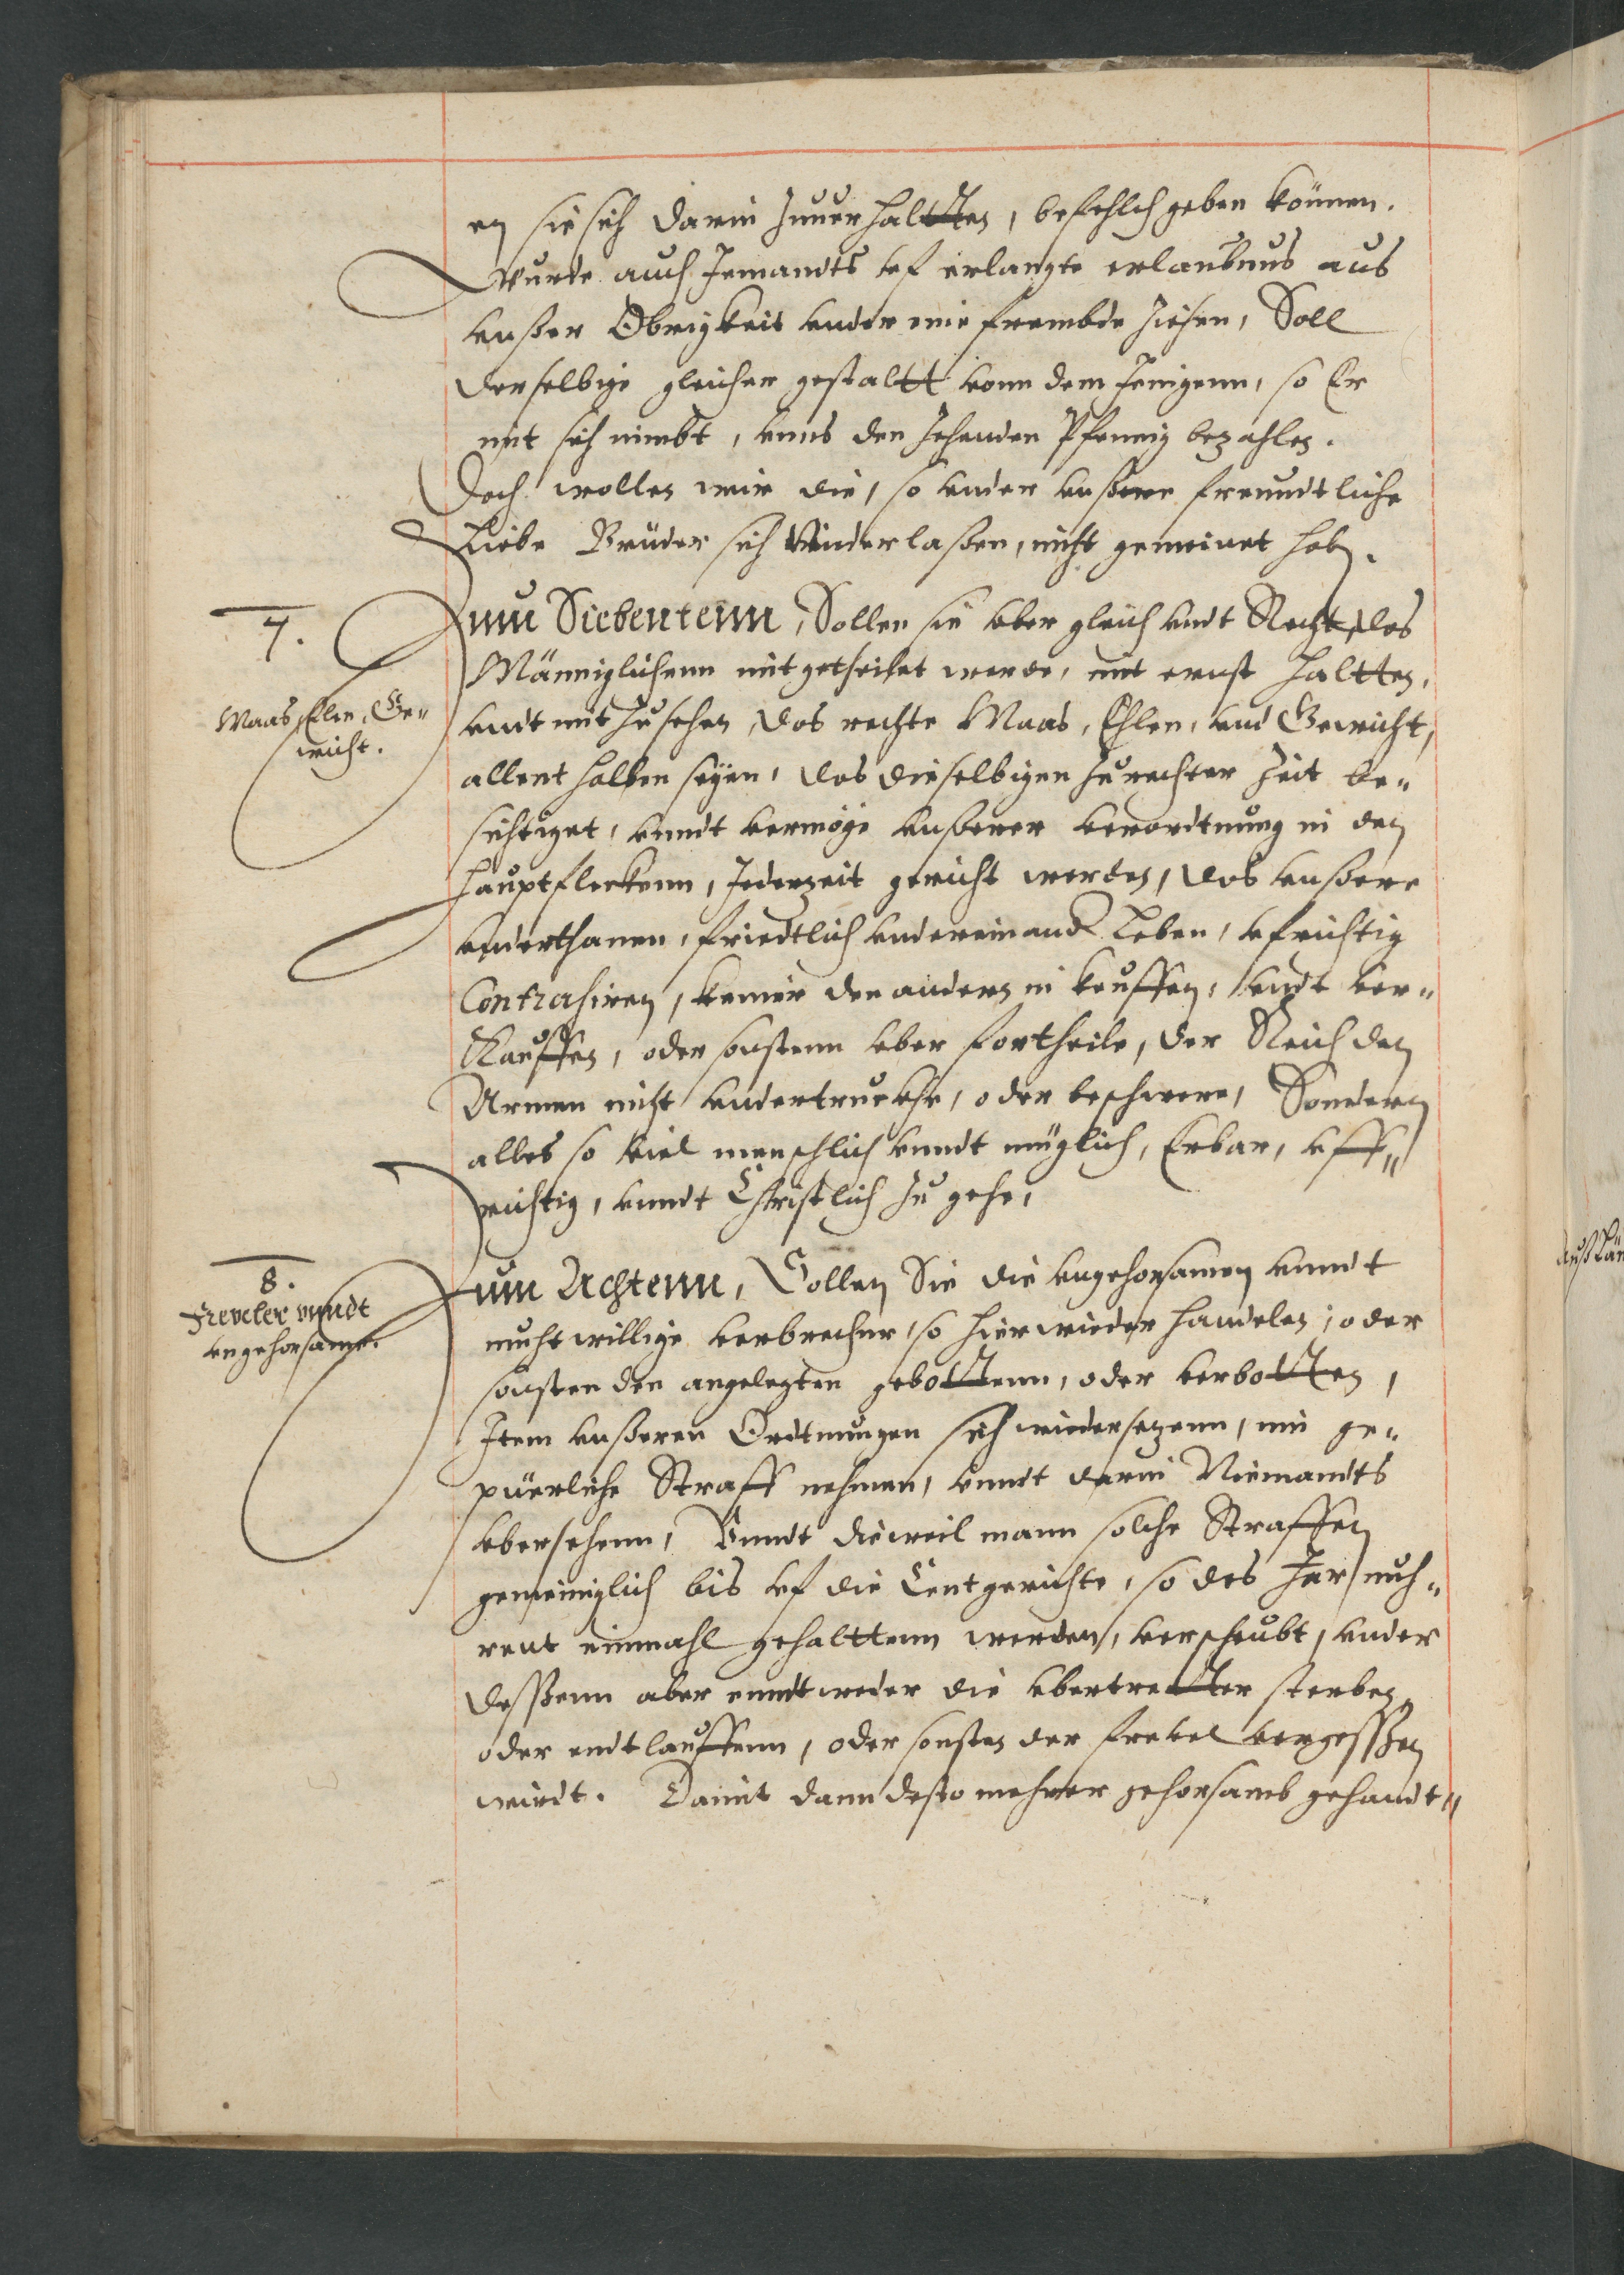 en sie sich darin zuuerhaltten, befehlch geben können.
Wurde auch Jemandts vf erlangte erlaubnus aus
vnßer Obrigkeit vnder eine frembde ziehen, Soll
derselbige gleicher gestaltt vonn dem Jenigenn, so Er
mit sich nimbt, vnns den zehenden Pfennig bezahlen.
Doch wollen wir die, so vnder vnßere freundtliche
Liebe Brüder sich Niderlaßen, nicht gemeinet haben.
7.
Maas, Elen, Ge„
wicht.
Zum Siebentenn, Sollen sie vber gleich vndt Recht, das
Männiglichenn mitgetheilet werde, mit ernst haltten,
vndt mit zusehen, das rechte Maas, Ehlen, vnd Gewicht,
allent halben seyen, das dieselbigen zu rechter Zeit be„
sichtiget, vnndt vermöge vnßerer verordtnung in den
Hauptfleckenn, Jederzeit gericht werden, das vnßere
vnderthanen, friedtlich vndereinand Leben, vfrichtig
Contrahiren, keiner den andern in keuffen, vndt ver„
Kauffen, oder sonstenn vber fortheile, der Reich den
Armen nicht vndertruckhe, oder beschwere, Sondern
alles so viel menschlich vnndt müglich, Erbar, vff„
richtig, vnndt Christlich zu gehe,
8.
Freveler vnndt
vngehorsame.
Zum Achtenn, Sollen Sie die vngehorsamen vnndt
muhtwillige verbrecher, so hierwieder handelen, oder
sonsten den angelegten gebottenn, oder verbotten,
Item vnßeren Ordtnungen sich wiedersezenn, inn ge„
püerliche Straff nehmen, vnndt darin Niemandts
vbersehenn, Vnndt dieweil mann solche Straffen
gemeiniglich bis vf die Centgerichte, so des Jars nuh„
rent einmahl gehalttenn werden, verscheubt, vnder
deßenn aber enndtweder die vbertretter sterben,
oder entlauffenn, oder sonsten der frevel vergeßen
wirdt. Damit dann desto mehrer gehorsamb gehandt„